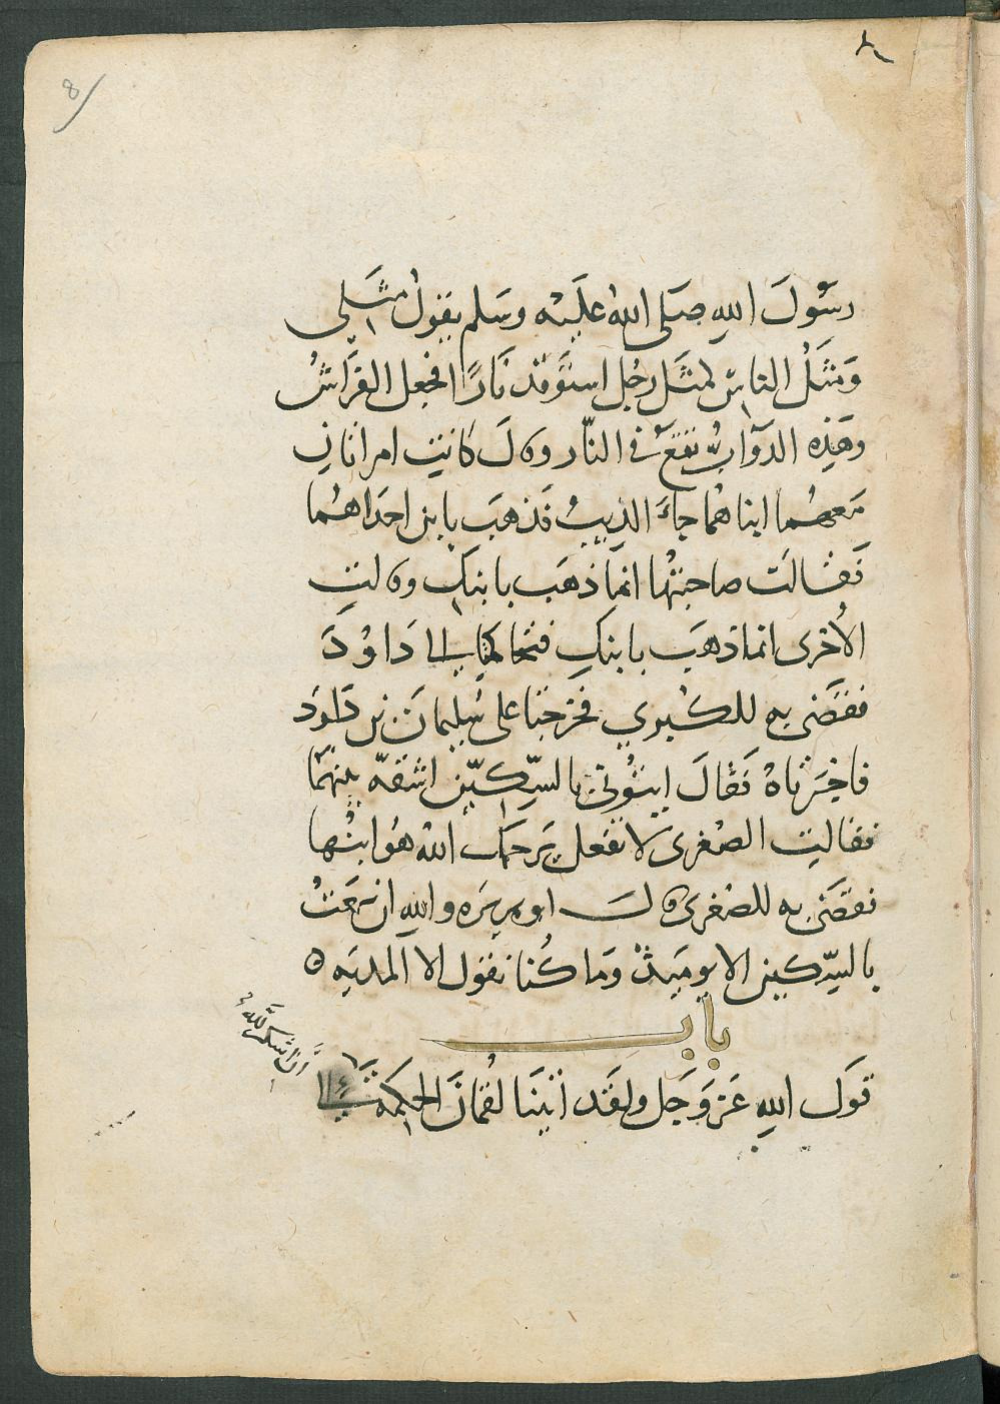 8
رسُولَ اللهِ صَلى اللهُ عَلَيْه وسَلم يقولُ مثَلِي
وَمثَلُ الناسِ كمثَلِ رجُلٍ استَوقد نَارًا فجعل الفَرَاشُ
وهَذِه الدوَابُّ تقَعُ في النّار وقالَ كانَتِ امراتانِ
مَعهُما ابناهُما جاءَ الذيبُ فذهَبَ بابن احدَاهُما
فَقالَت صاحبتُها انمَا ذهَب بابنكِ وقالتِ
الأخرى انما ذهَب بابنكِ فتحاكمتا الى دَاوُدَ
فقضَى به للكُبرى فخرجَتا على سُليمانَ بن دَاودَ
فاخبَرتاهُ فَقالَ ايتُوني بالسِّكّين اشقّه بينهُما
فقالتِ الصُغرى لا تفعل يَرحمك اللهُ هُو ابنُها
فقضَى به للصُغرى قال ابو هريرَه واللهِ ان سَمعتُ
بالسِّكين الا يوميذٍ وَما كُنا نقول الا المديَه ه
باب
قَول اللهِ عَز وَجَل ولقَد اتينَا لقُمانَ الحكمَة الى
ان اشكر لله